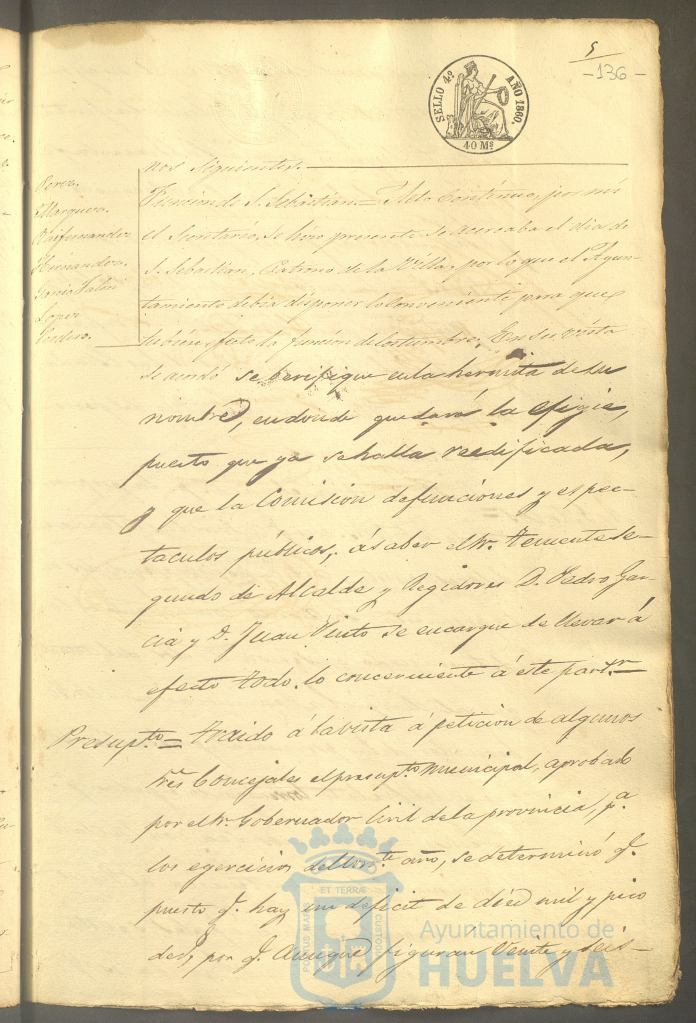 5
-136-
SELLO 4º AÑO 1860.
40 Ms
nos siguientes.
Perez.
Marquez.
Hernandez.
Lopez
Cordero.
Funcion de S. Sebastian = Acto Continuo, por mi
el Secretario, se hizo presente se acercaba el dia de
S. Sebastian, Patrono de la Villa, por lo que el Ayun-
tamiento debia disponer lo conveniente para que
la funcion de costumbre. En su vista
se acordó se berifique en la hermita de su
nombre, en donde quedará la efigie,
puesto que ya se halla reedificada,
y que la Comision de funciones y espec-
taculos públicos, á saber el Sr. Teniente se-
gundo de Alcalde y Regidores D. Pedro Gar-
cia y D. Juan Pinto se encargue de llevar á
efecto todo lo concerniente á este partr.
Presupto = Traido á la vista á peticion de algunos
Sres Concejales el presupto municipal, aprobado
por el Sr. Gobernador Civil de la provincia, pa
los egercicios del año, se determinó q.
puesto q. hay un deficit de diez mil y pico
de por q. Aunque figuran Veinte y seis-
PORTUS MARIS ET TERRÆ CUSTODIA
Ayuntamiento de
HUELVA